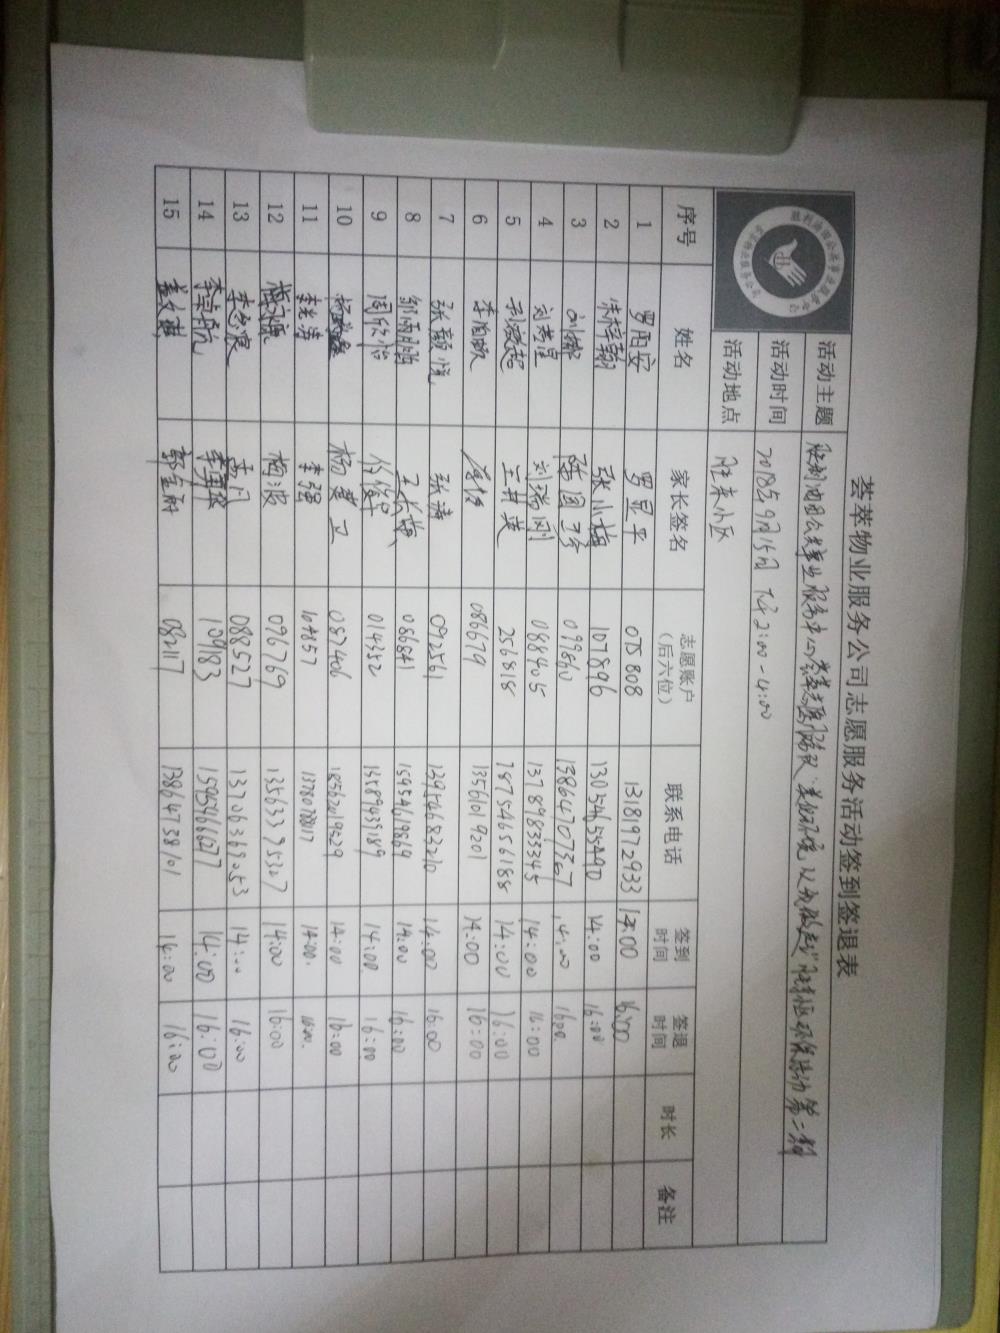 荟萃物业服务公司志愿服务活动签到签退表
活动主题 胜利油田公共事业服务中心荟萃志愿服务队"美化环境 从我做起"胜东社区环保活动第二期
活动时间 2018年9月15日 下午2:00-4:00
活动地点 胜东小区
序号 姓名 家长签名 志愿账户（后六位） 联系电话 签到时间 签退时间 时长 备注
1 罗阳安 罗显平 075808 13181972933 14:00 16:00
2 张小梅 107896 13054655490 14:00 16:00
3 刘娜 099860 13864707367 14:00 16:00
4 刘瑞刚 088405 13789833345 14:00 16:00
5 王井英 256818 18754656188 14:00 16:00
6 086679 13561019201 14:00 16:00
7 张颢悦 张涛 092561 13954682210 14:00 16:00
8 邹雨珊 王长梅 086841 15954619869 14:00 16:00
9 周欣怡 014352 13589039189 14:00 16:00
10 杨楚卫 087406 18562019529 14:00 16:00
11 李光涛 李强 104857 13780788117 14:00 16:00
12 梅波 096769 13563395307 14:00 16:00
13 088527 13706369053 14:00 16:00
14 李卓航 109183 15954666277 14:00 16:00
15 082117 13864738101 14:00 16:00